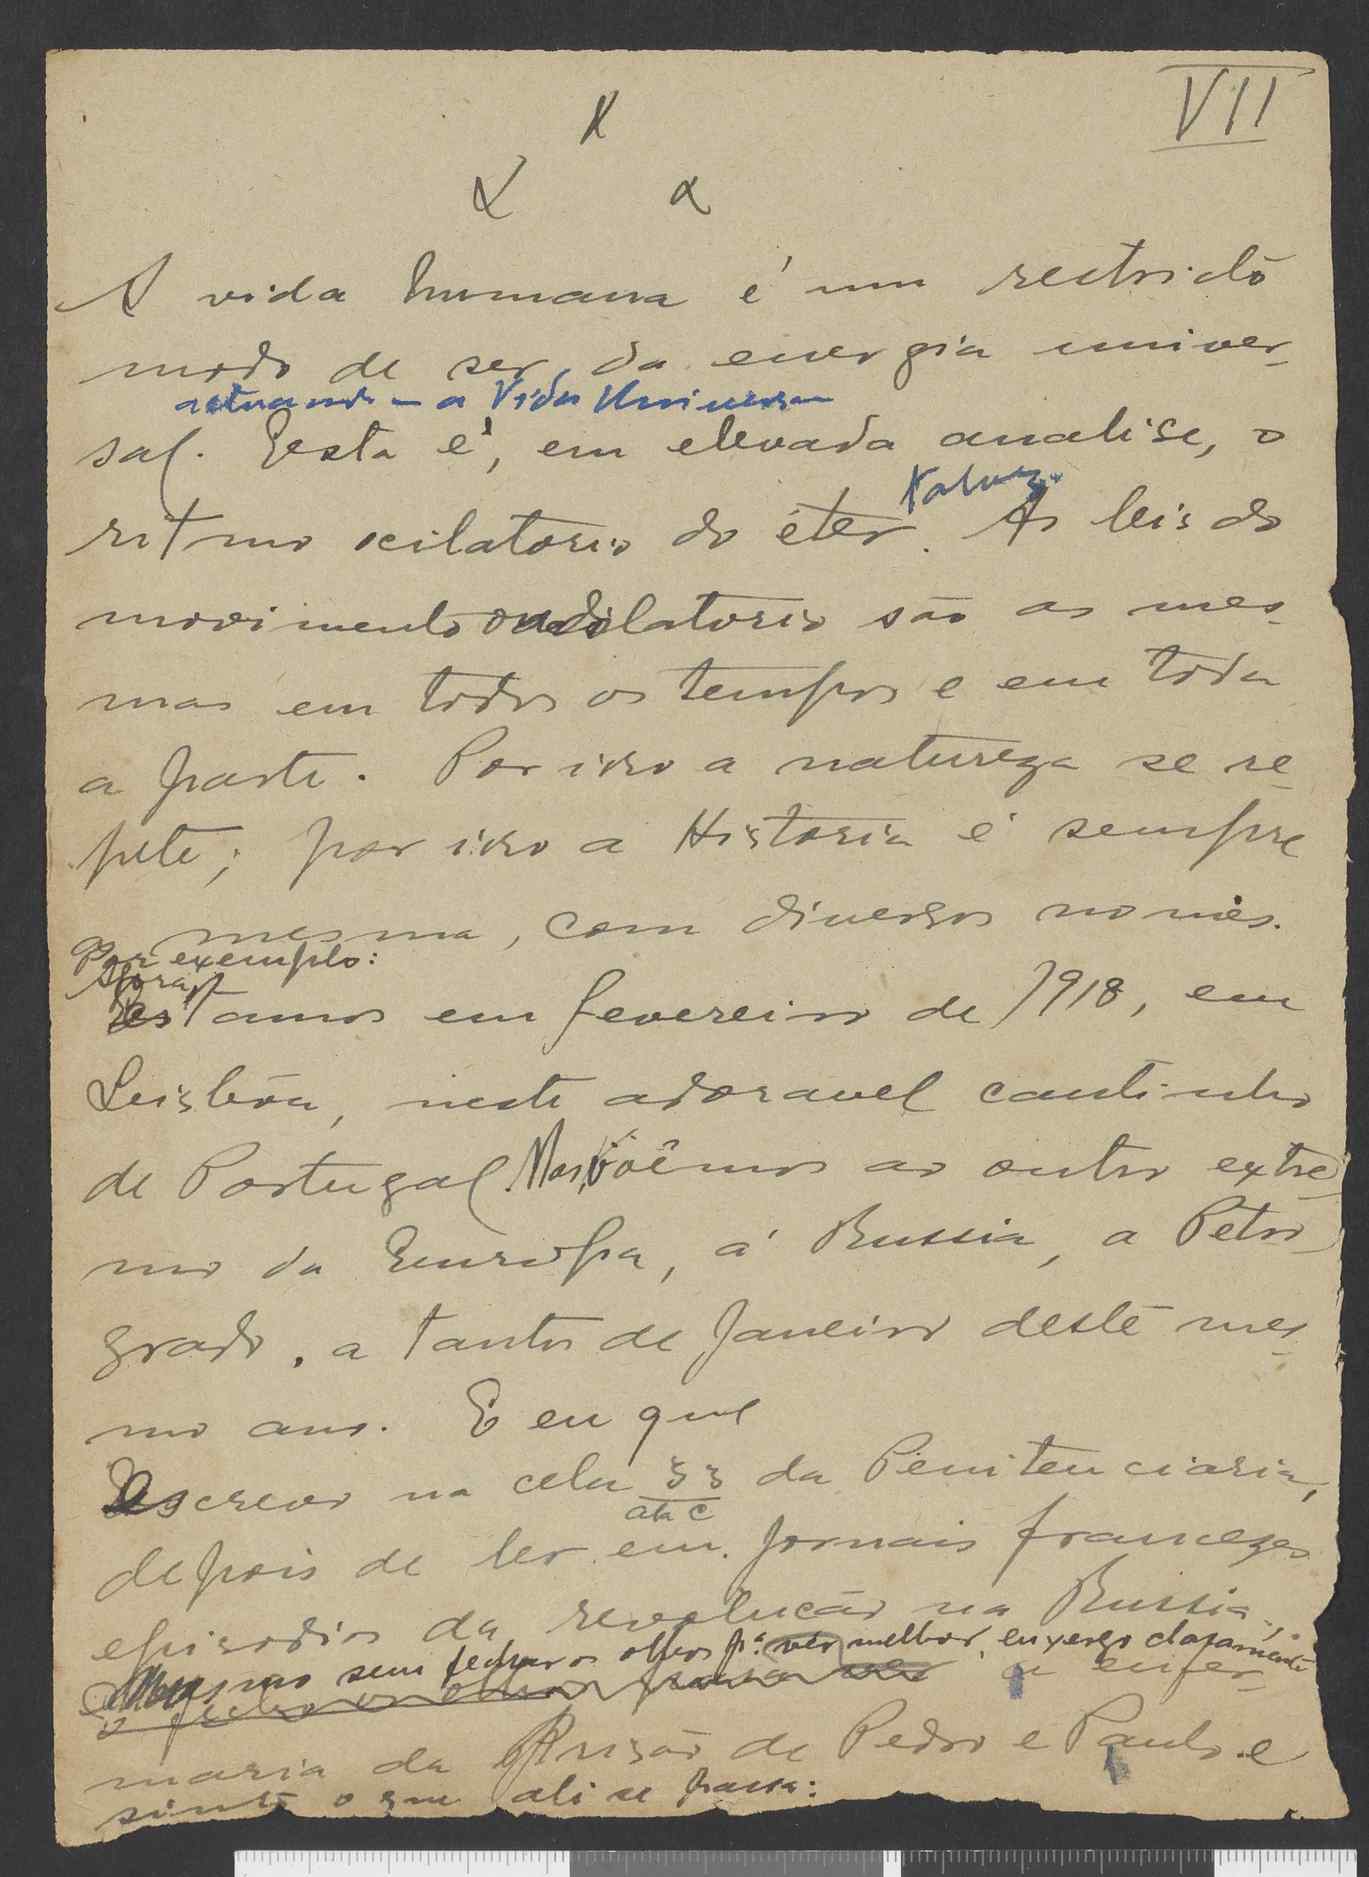 VII
A vida humana é um restricto
modo de ser da energia univer-
actuando — a Vida Universal
sal. Esta é, em elevada analise, o
talvez
ritmo oscilatorio do éter. As leis do
movimento ondulatorio são as mes-
mas em todos os tempos e em toda
a parte. Por isso a natureza se re-
pete; por isso a Historia é sempre
a mesma, com diversos nomes.
Por exemplo:
Agora,
Estamos em fevereiro de 1918, em
Lisbôa, neste adoravel cantinho
de Portugal. Mas, voêmos ao outro extre-
mo da Europa, á Russia, a Petro-
grado, a tantos de Janeiro deste mes-
mo ano. E eu que
Escrevo na cela 33 da Penitenciaria,
ala C
depois de ler em jornais francezes
episodios da revolução na Russia,
mesmo sem fechar os olhos pª. vêr melhor, enxergo claramente
a enfer-
maria da Prisão de Pedro e Paulo e
sinto o que ali se passa: